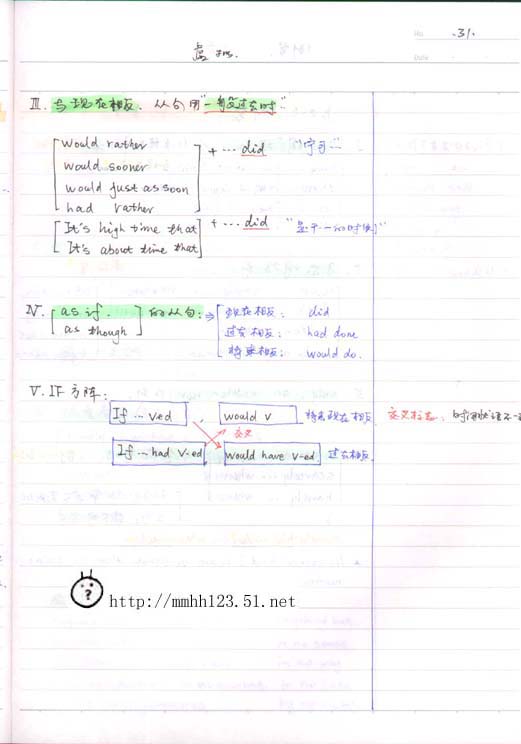 No. 31.
Date
虚拟.
Ⅲ. 与现在相反, 从句用"一般过去时".
would rather
would sooner
would just as soon
had rather
+ … did "宁可…"
It's high time that
It's about time that
+ … did "是干…的时候"
Ⅳ. as if.
as though
的从句: ⇒
现在相反: did
过去相反: had done
将来相反: would do.
Ⅴ. IF 方阵:
If … ved , would v 将来现在相反
交叉
交叉打态,
If … had v-ed would have v-ed 过去相反
http://mmhh123.51.net